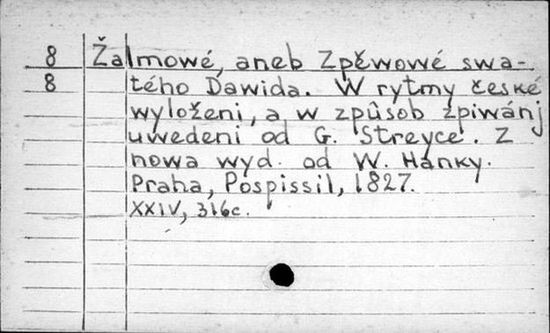 8 Žalmowé, aneb Zpěwowé swa-
8 tého Dawida. W rytmy české
wyloženi, a w způsob zpiwánj
uwedeni od G. Streyce. Z
nowa wyd. od W. Hanky.
Praha, Pospissil, 1827.
XXIV, 316c.